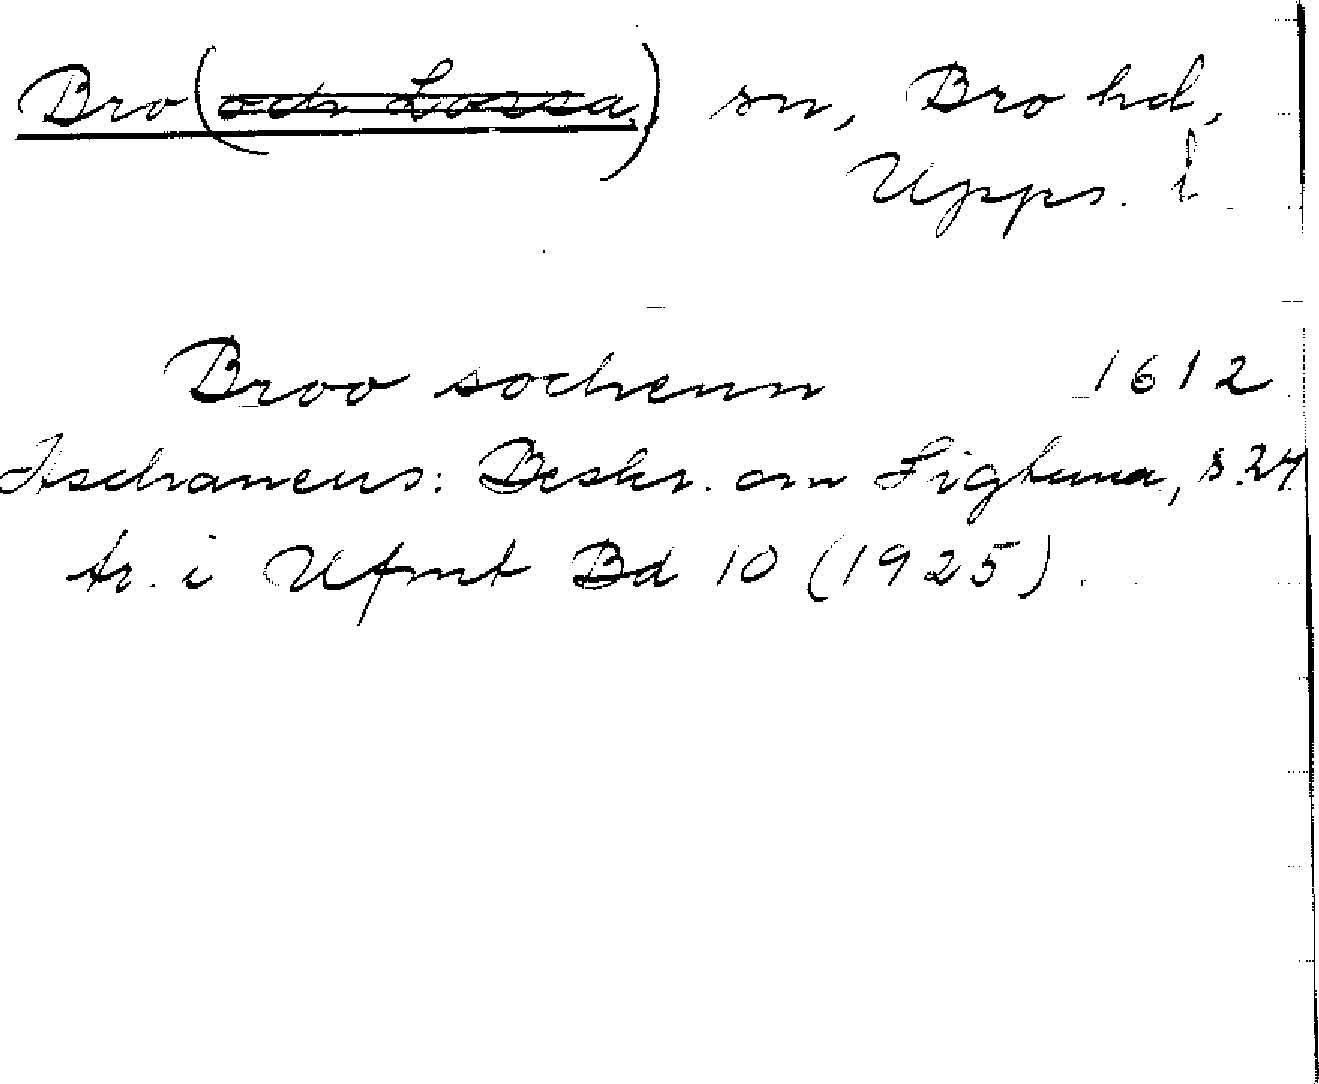 Bro (och Lossa) sn, Bro hd,
Upps. l
Broo sochenn 1612
Aschaneus: Beskr. om Sigtuna, s. 24
tr. i Ufmt Bd 10 (1925).